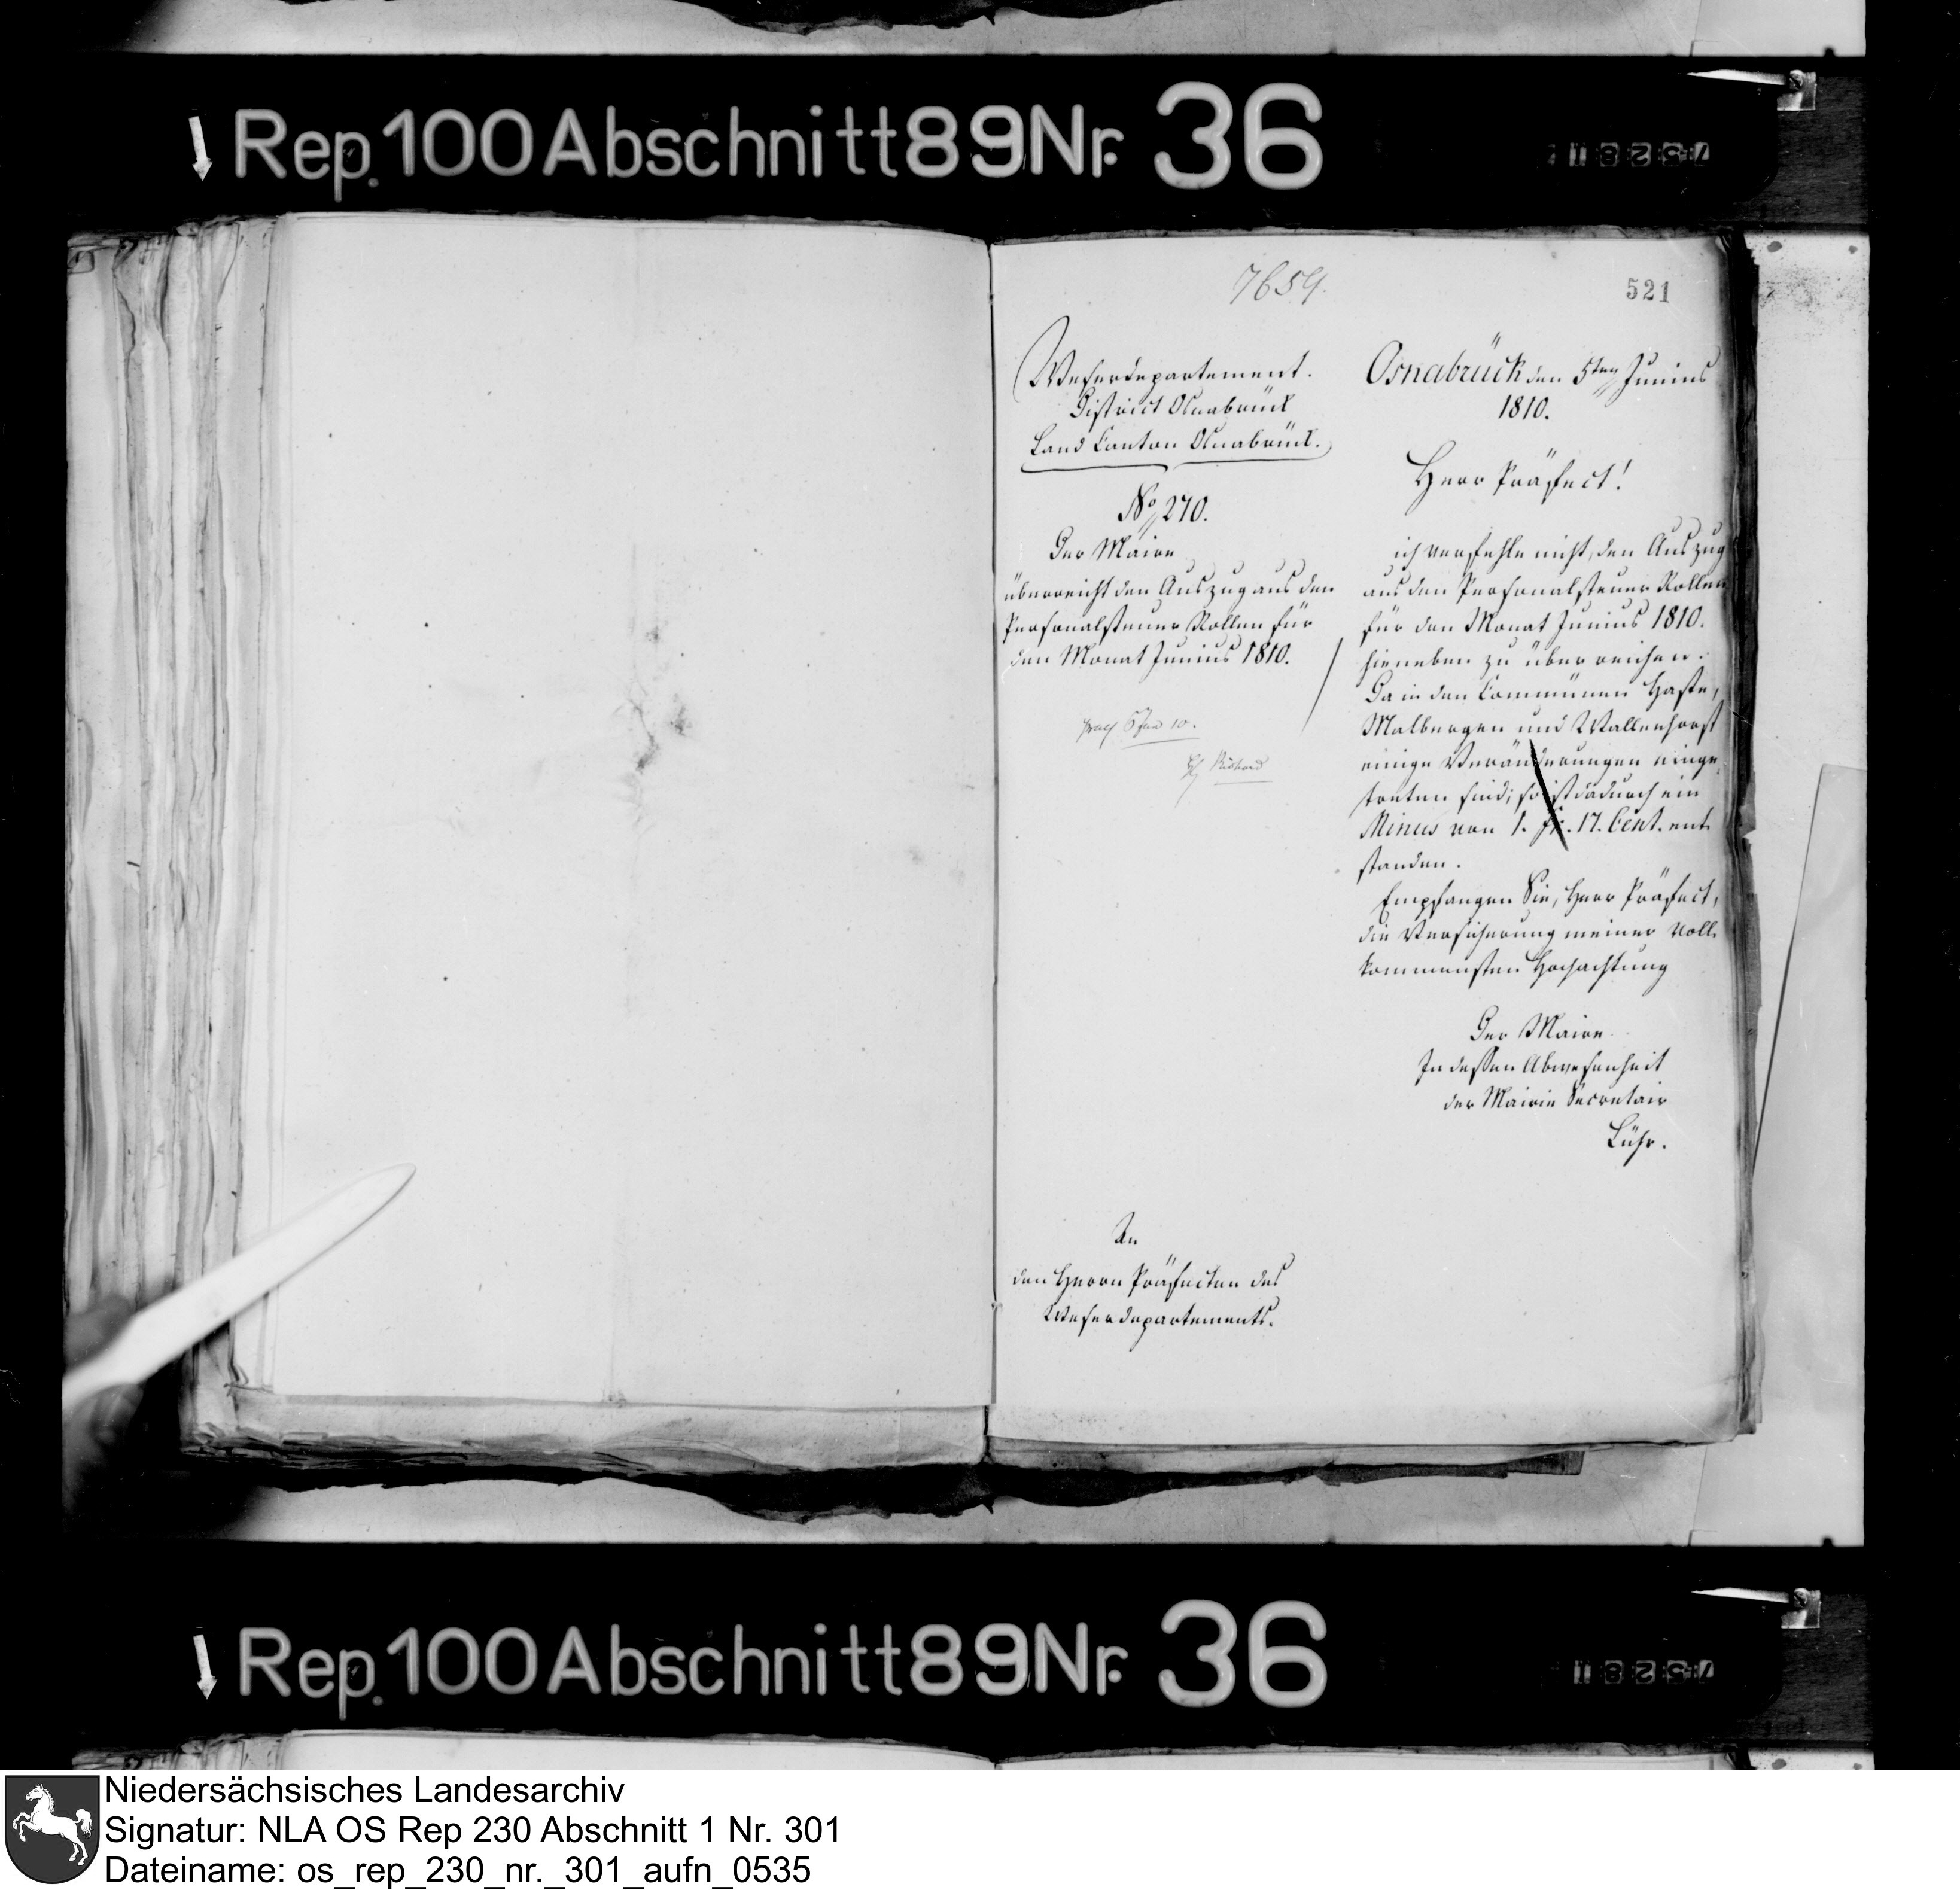 Rep. 100 Abschnitt 89 Nr. 36
7659.
521
Weserdepartement.
District Osnabrück
Land Canton Osnabrück.
No 270.
Der Maire
überreicht den Auszug aus den
Personalsteuer Rollen für
den Monat Junius 1810.
An
den Herrn Präfecten des
Weserdepartements.
Osnabrück den 5ten Junius
1810.
Herr Präfect!
ich verfehle nicht, den Auszug
aus den Personalsteuer Rollen
für den Monat Junius 1810.
hieneben zu überreichen.
Da in den Communen Haste,
Malbergen und Wallenhorst
einige Veränderungen einge-
treten sind; so ist dadurch ein
Minus von 1. fr. 17. Cent. ent-
standen.
Empfangen Sie, Herr Präfect,
die Versicherung meiner voll-
kommensten Hochachtung
Der Maire
In dessen Abwesenheit
der Mairie Secretair
Lühr.
Rep. 100 Abschnitt 89 Nr. 36
Niedersächsisches Landesarchiv
Signatur: NLA OS Rep 230 Abschnitt 1 Nr. 301
Dateiname: os_rep_230_nr._301_aufn_0535